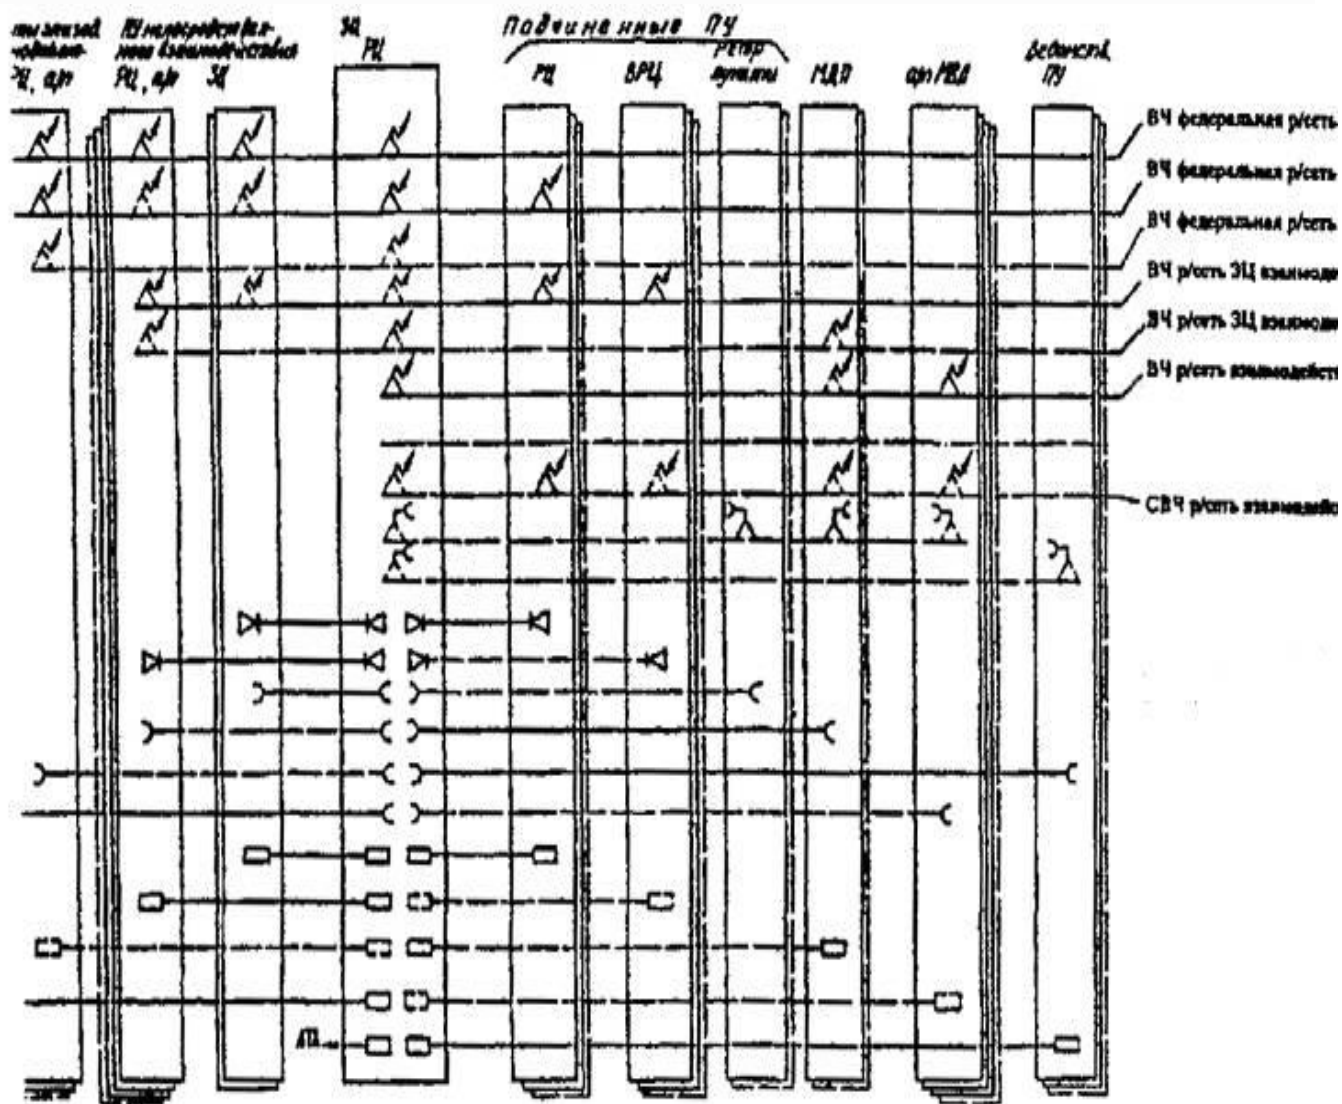 РЦ, а/п
ПУ непосредствен-
ного взаимодействия
РЦ, а/п
ЗЦ
ЗЦ
РЦ
Подчиненные ПУ
РЦ
ВРЦ
МДП
а/п МВЛ
Ведомств.
ПУ
ВЧ федеральная р/сеть
ВЧ федеральная р/сеть
ВЧ федеральная р/сеть
ВЧ р/сеть ЗЦ взаимоде
ВЧ р/сеть ЗЦ взаимоде
ВЧ р/сеть взаимодейст
СВЧ р/сеть взаимодейс